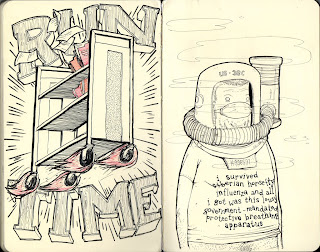 RUN
TIME
US·38C
i survived
siberian
influenza and all
i got was this lousy
government-mandated
protective breathing
apparatus